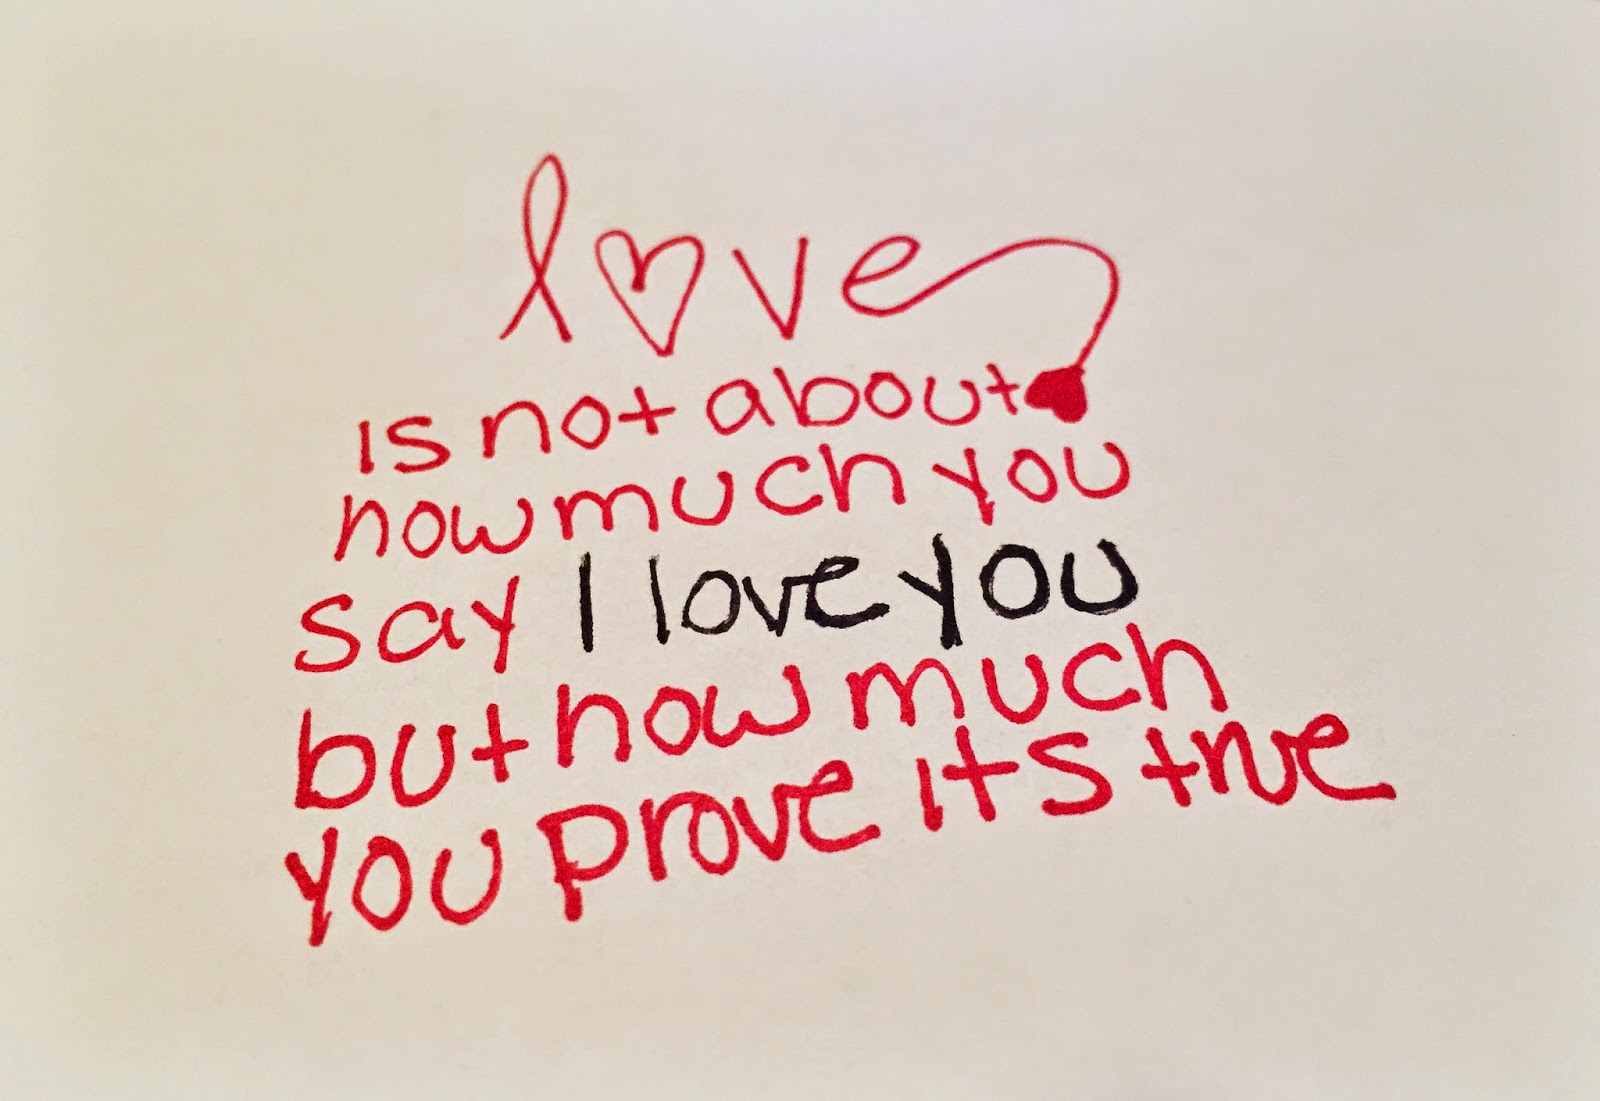 love
is not about
how much you
say I love you
but how much
you prove its true